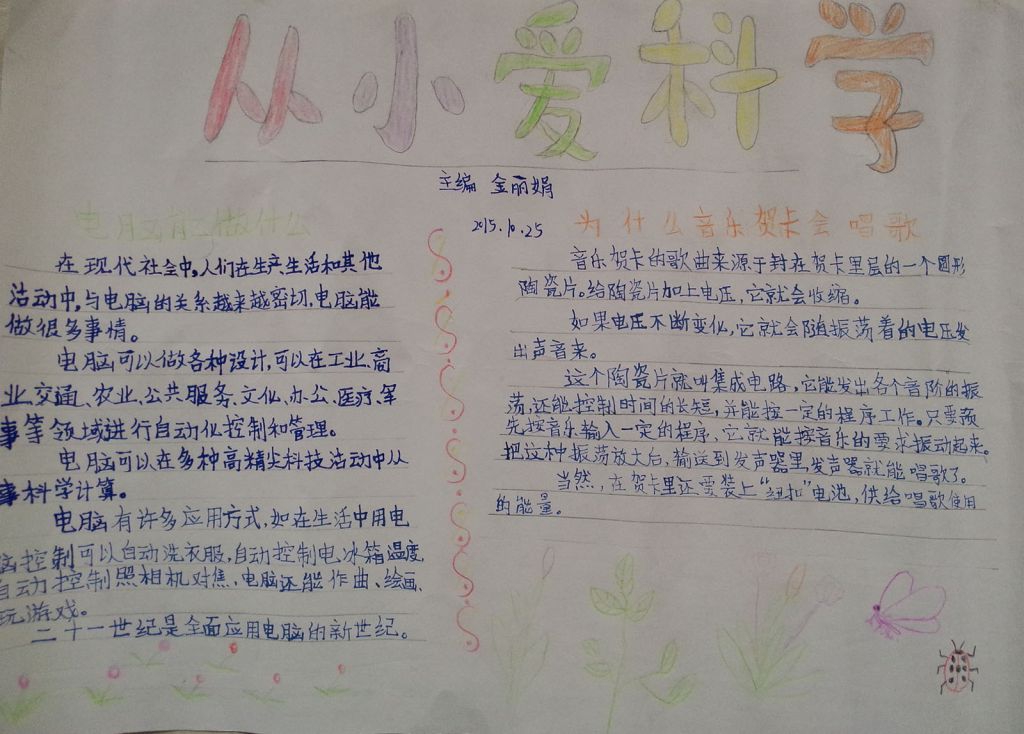 从小爱科学
主编 金丽娟
2015.10.25
电脑能做什么
在现代社会中,人们在生产生活和其他
活动中,与电脑的关系越来越密切,电脑能
做很多事情。
电脑可以做各种设计,可以在工业、商
业、交通、农业、公共服务、文化、办公、医疗、军
事等领域进行自动化控制和管理。
电脑可以在多种高精尖科技活动中从
事科学计算。
电脑有许多应用方式,如在生活中用电
脑控制可以自动洗衣服,自动控制电冰箱温度,
自动控制照相机对焦、电脑还能作曲、绘画、
玩游戏。
二十一世纪是全面应用电脑的新世纪。
为什么音乐贺卡会唱歌
音乐贺卡的歌曲来源于封在贺卡里层的一个圆形
陶瓷片。给陶瓷片加上电压,它就会收缩。
如果电压不断变化,它就会随振荡着的电压发
出声音来。
这个陶瓷片就叫集成电路,它能发出各个音阶的振
荡,还能控制时间的长短,并能按一定的程序工作。只要预
先按音乐输入一定的程序,它就能按音乐的要求振动起来。
把这种振荡放大后,输送到发声器里,发声器就能唱歌了。
当然,在贺卡里还要装上“纽扣”电池,供给唱歌使用
的能量。